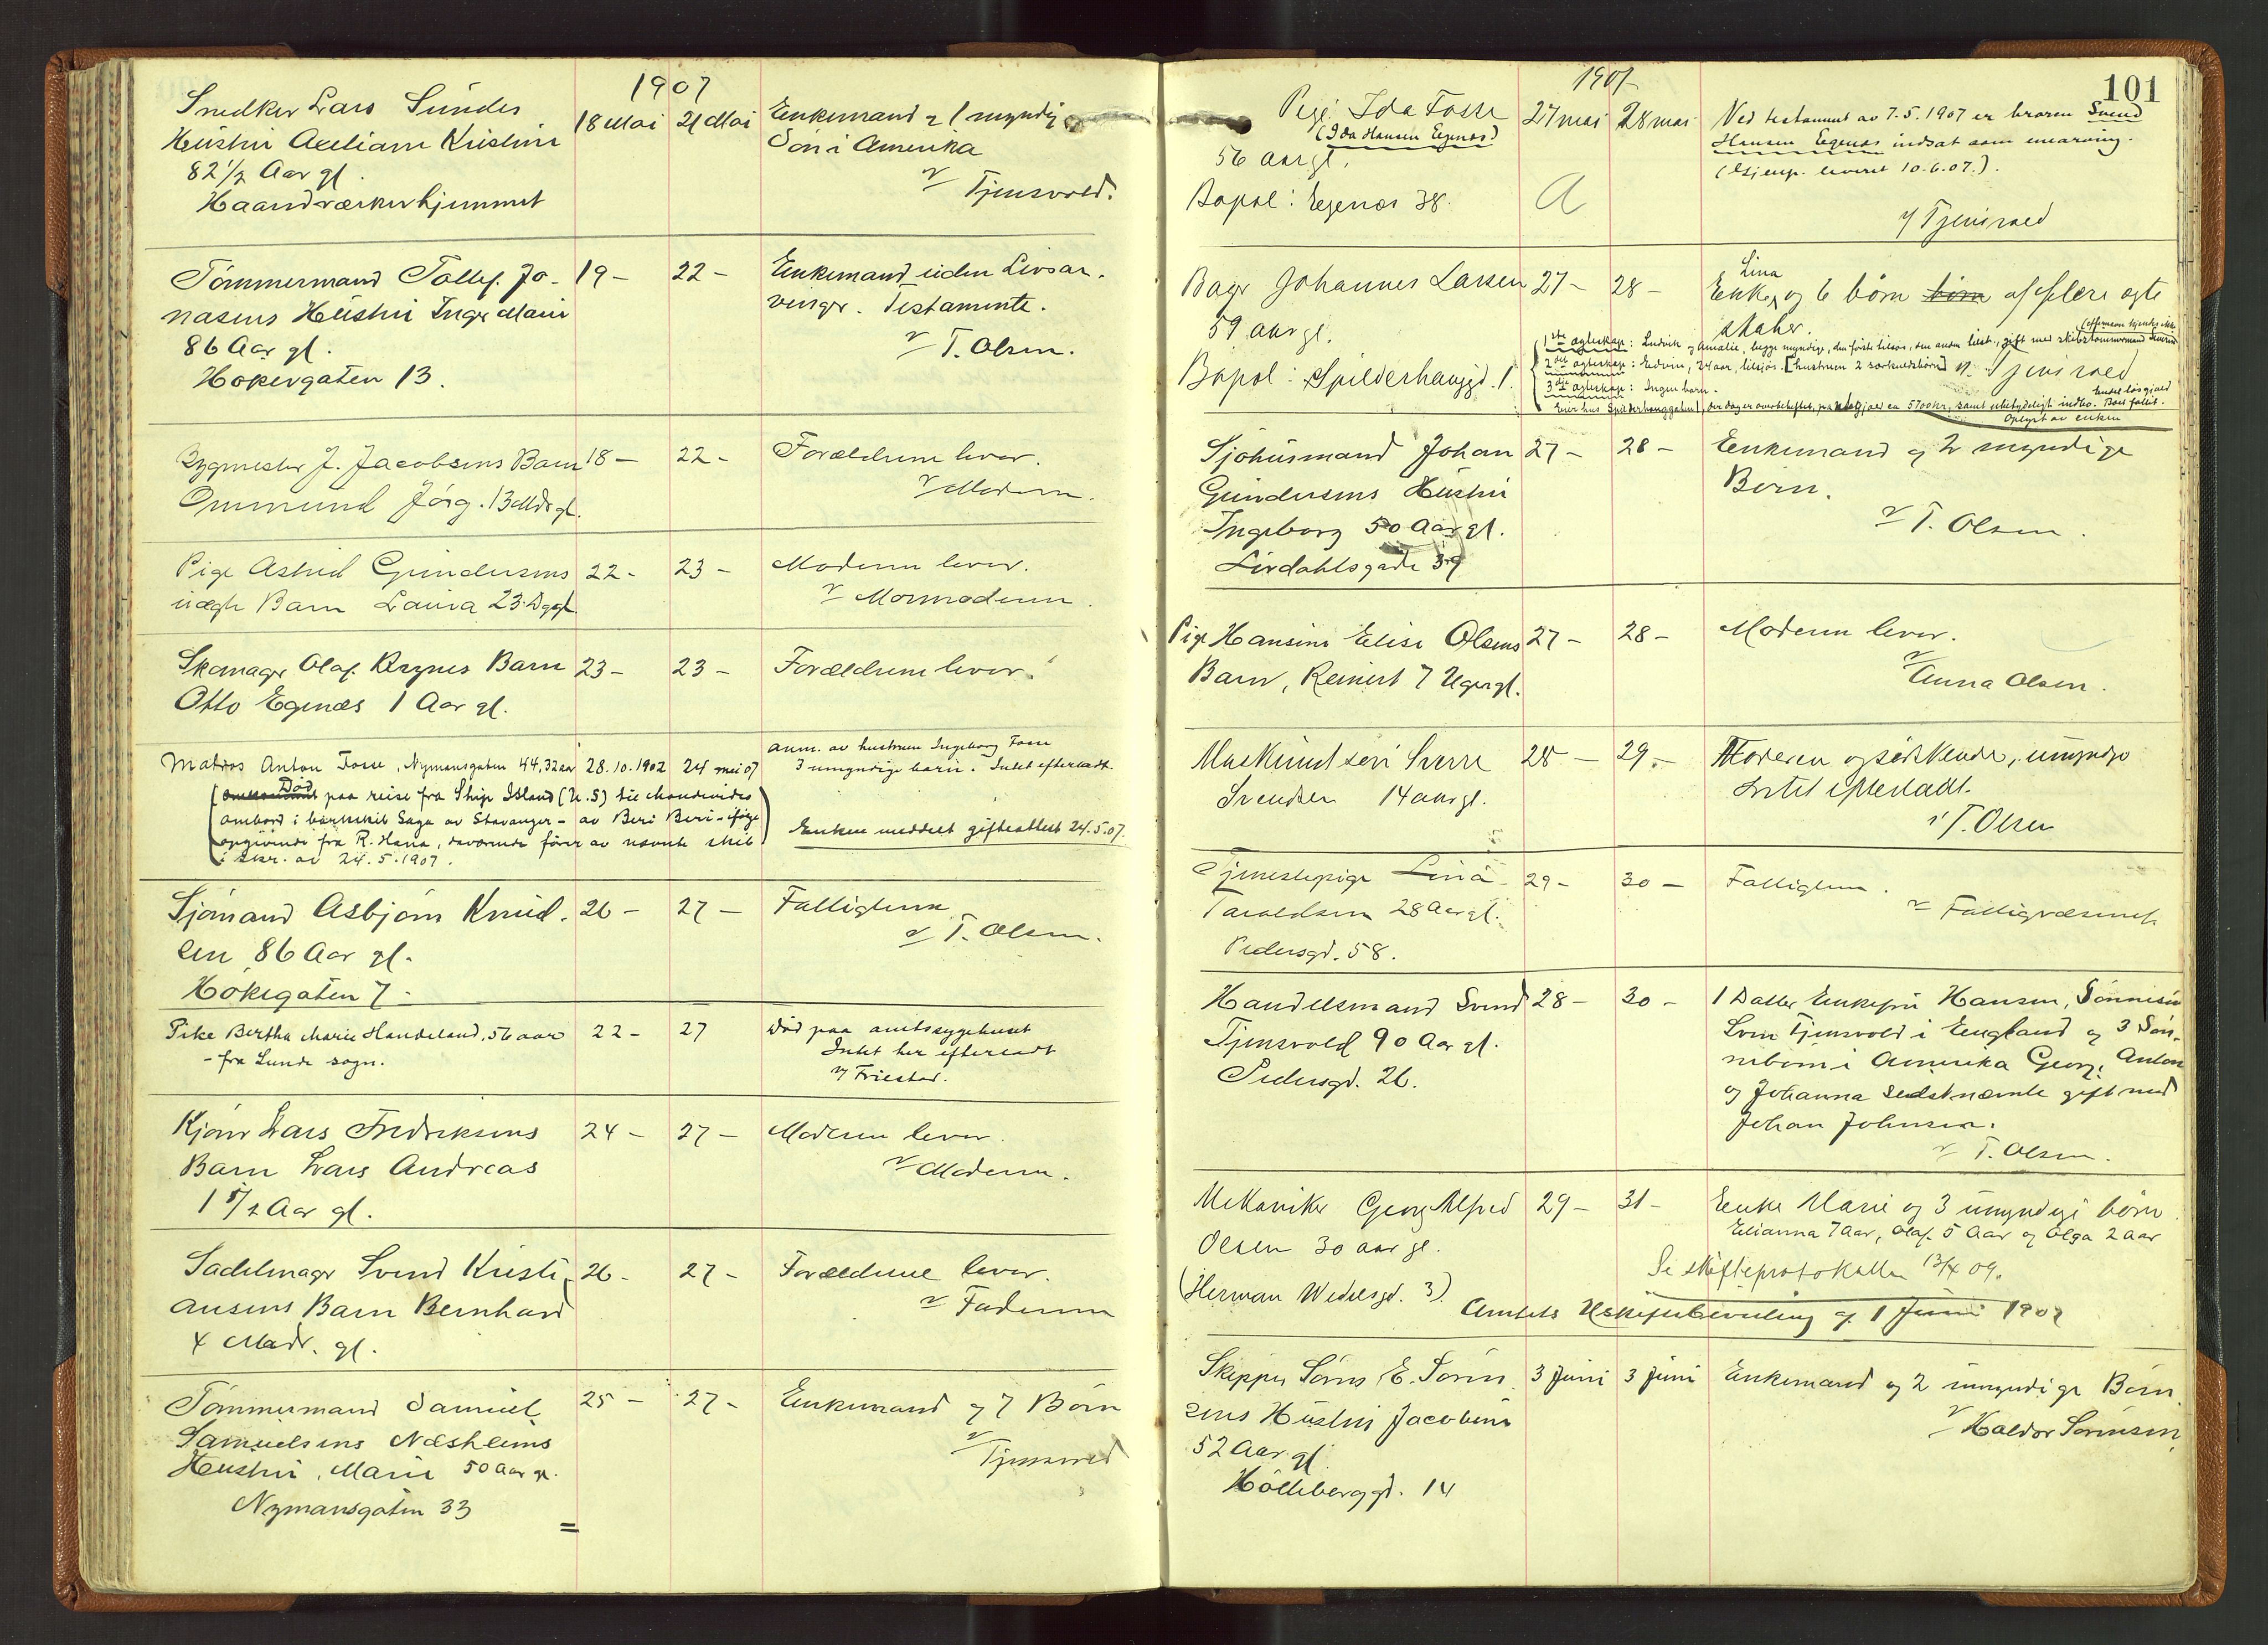 1907
Snedker Lars Sundes
Hustru Axeliane Kristine
82 1/2 Aar gl.
Haandværkerhjemmet
18 Mai
21 Mai
Enkemand & 1 myndig
Søn i Amerika
v Tjensvold.
Tømmermand Tollef Jo-
nasens Hustru Inger Marie
86 Aar gl.
Høkergaten 13.
19 -
22 -
Enkemand uden Livsar-
vinger. Testamente.
v T. Olsen.
Bygmester J. Jacobsens Barn
Ommund Jørg. 13 Mdr gl.
18 -
22 -
Forældrene lever.
v Moderen.
Pige Astrid Gundersens
uægte Barn Laura 23 Dg gl.
22 -
23 -
Moderen lever.
v Mormoderen.
Skomager Olaf Brynes Barn
Otto Egenæs 1 Aar gl.
23 -
23 -
Forældrene lever.
Matros Anton Fosse, Nymansgaten 44, 32 aar
Død
paa reise fra Ship Island (U.S) til Montevideo
ombord i barkskib Saga av Stavanger - av Beri Beri - ifølge
opgivende fra R. Hana, daværende fører av nævnte skib
i skr. av 24.5.1907.
28.10.1902
24 mei 07
anm. av hustruen Ingeborg Fosse
3 umyndige barn. Intet efterladt.
Enken meddelt gifteattest 24.5.07.
Sjømand Asbjørn Knud-
sen 86 Aar gl.
Høkegaten 7.
26 -
27 -
Fattiglem
v T. Olsen.
Pike Bertha Marie Handeland, 56 aar
- fra Lunde sogn.
22 -
27
Død paa amtssygehuset
Intet her efterladt
v Friestad.
Kjører Lars Fredriksens
Barn Lars Andreas
1 1/2 Aar gl.
24 -
27 -
Moderen lever.
v Moderen.
Sadelmager Svend Kristi-
ansens Barn Bernhard
4 Mdr. gl.
26 -
27 -
Forældrene lever.
v Faderen
Tømmermand Samuel
Samuelsens Næsheims
Hustru, Marie 50 Aar gl.
Nymansgaten 33
25 -
27 -
Enkemand og 7 Børn
v Tjensvold
101
1907
Pige Ida Fosse
(Ida Hansen Egenæs)
56 aar gl.
Bopæl: Egenæs 38.
27 mai
28 mai
a
Ved testament av 7.5.1907 er broren Svend
Hansen Egenæs indsat som enearving.
(Gjenp. leveret 10.6.07.).
v Tjensvold
Bager Johannes Larsen
59 aar gl.
Bopæl: Spilderhauggd. 1.
27 -
28 -
Lina
Enke, og 6 børn børn af flere ægte
skaber.
1ste ægteskap: Ludvik og Amalie, begge myndige, den første tilsjøs, den anden gift med skibstømmermand
2det ægteskap: Edvin, 24 aar, tilsjøs. [hustruen 2 særkuldsbørn] v. Tjensvold
3dje ægteskap: Ingen barn.
Eier hus Spilderhauggaten 1, samt ubetydeligt indbo. Boet fallit.
Oplyst av enken
Sjøhusmand Johan
Gundersens Hustru
Ingeborg 50 Aar gl.
Lindahlsgade 39
27 -
28 -
Enkemand og 2 myndige
Børn.
v T. Olsen.
Pige Hansine Elise Olsens
Barn, Reinert 7 Uger gl.
27 -
28 -
Moderen lever.
v Anna Olsen.
Maskinist søn Sverre
Svendsen 14 aar gl.
28 -
29 -
Moderen og søskende, umyndige
Intet efterladt.
v T. Olsen
Tjenestepige Lina
Taraldsen 28 Aar gl.
Pedersgd. 58.
29 -
30 -
Fattiglem.
v Fattigvæsenet.
Handelsmand Svend
Tjensvold 90 Aar gl.
Pedersgd. 26.
28 -
30 -
1 Datter Enkefru Hansen, Sønnesøn
Sven Tjensvold i England og 3 Søn-
nebørn i Amerika Georg, Anton
og Johanna sidstnævnte gift med
Johan Johnsen.
v T. Olsen.
Mekaniker Georg Alfred
Olsen 30 aar gl.
(Herman Wedelsgd. 3)
29 -
31 -
Enke Marie og 3 umyndige børn
Elianna 7 Aar, Olaf 5 Aar og Olga 2 Aar
Se skifteprotokollen 13/4 09.
Amtets Uskiftebevilling af 1 Juni 1907
Skipper Søren E. Søren-
sens Hustru Jacobine
52 Aar gl.
Hølleberggd. 14
3 Juni
3 Juni
Enkemand og 2 umyndige Børn
v Haldor Sørensen